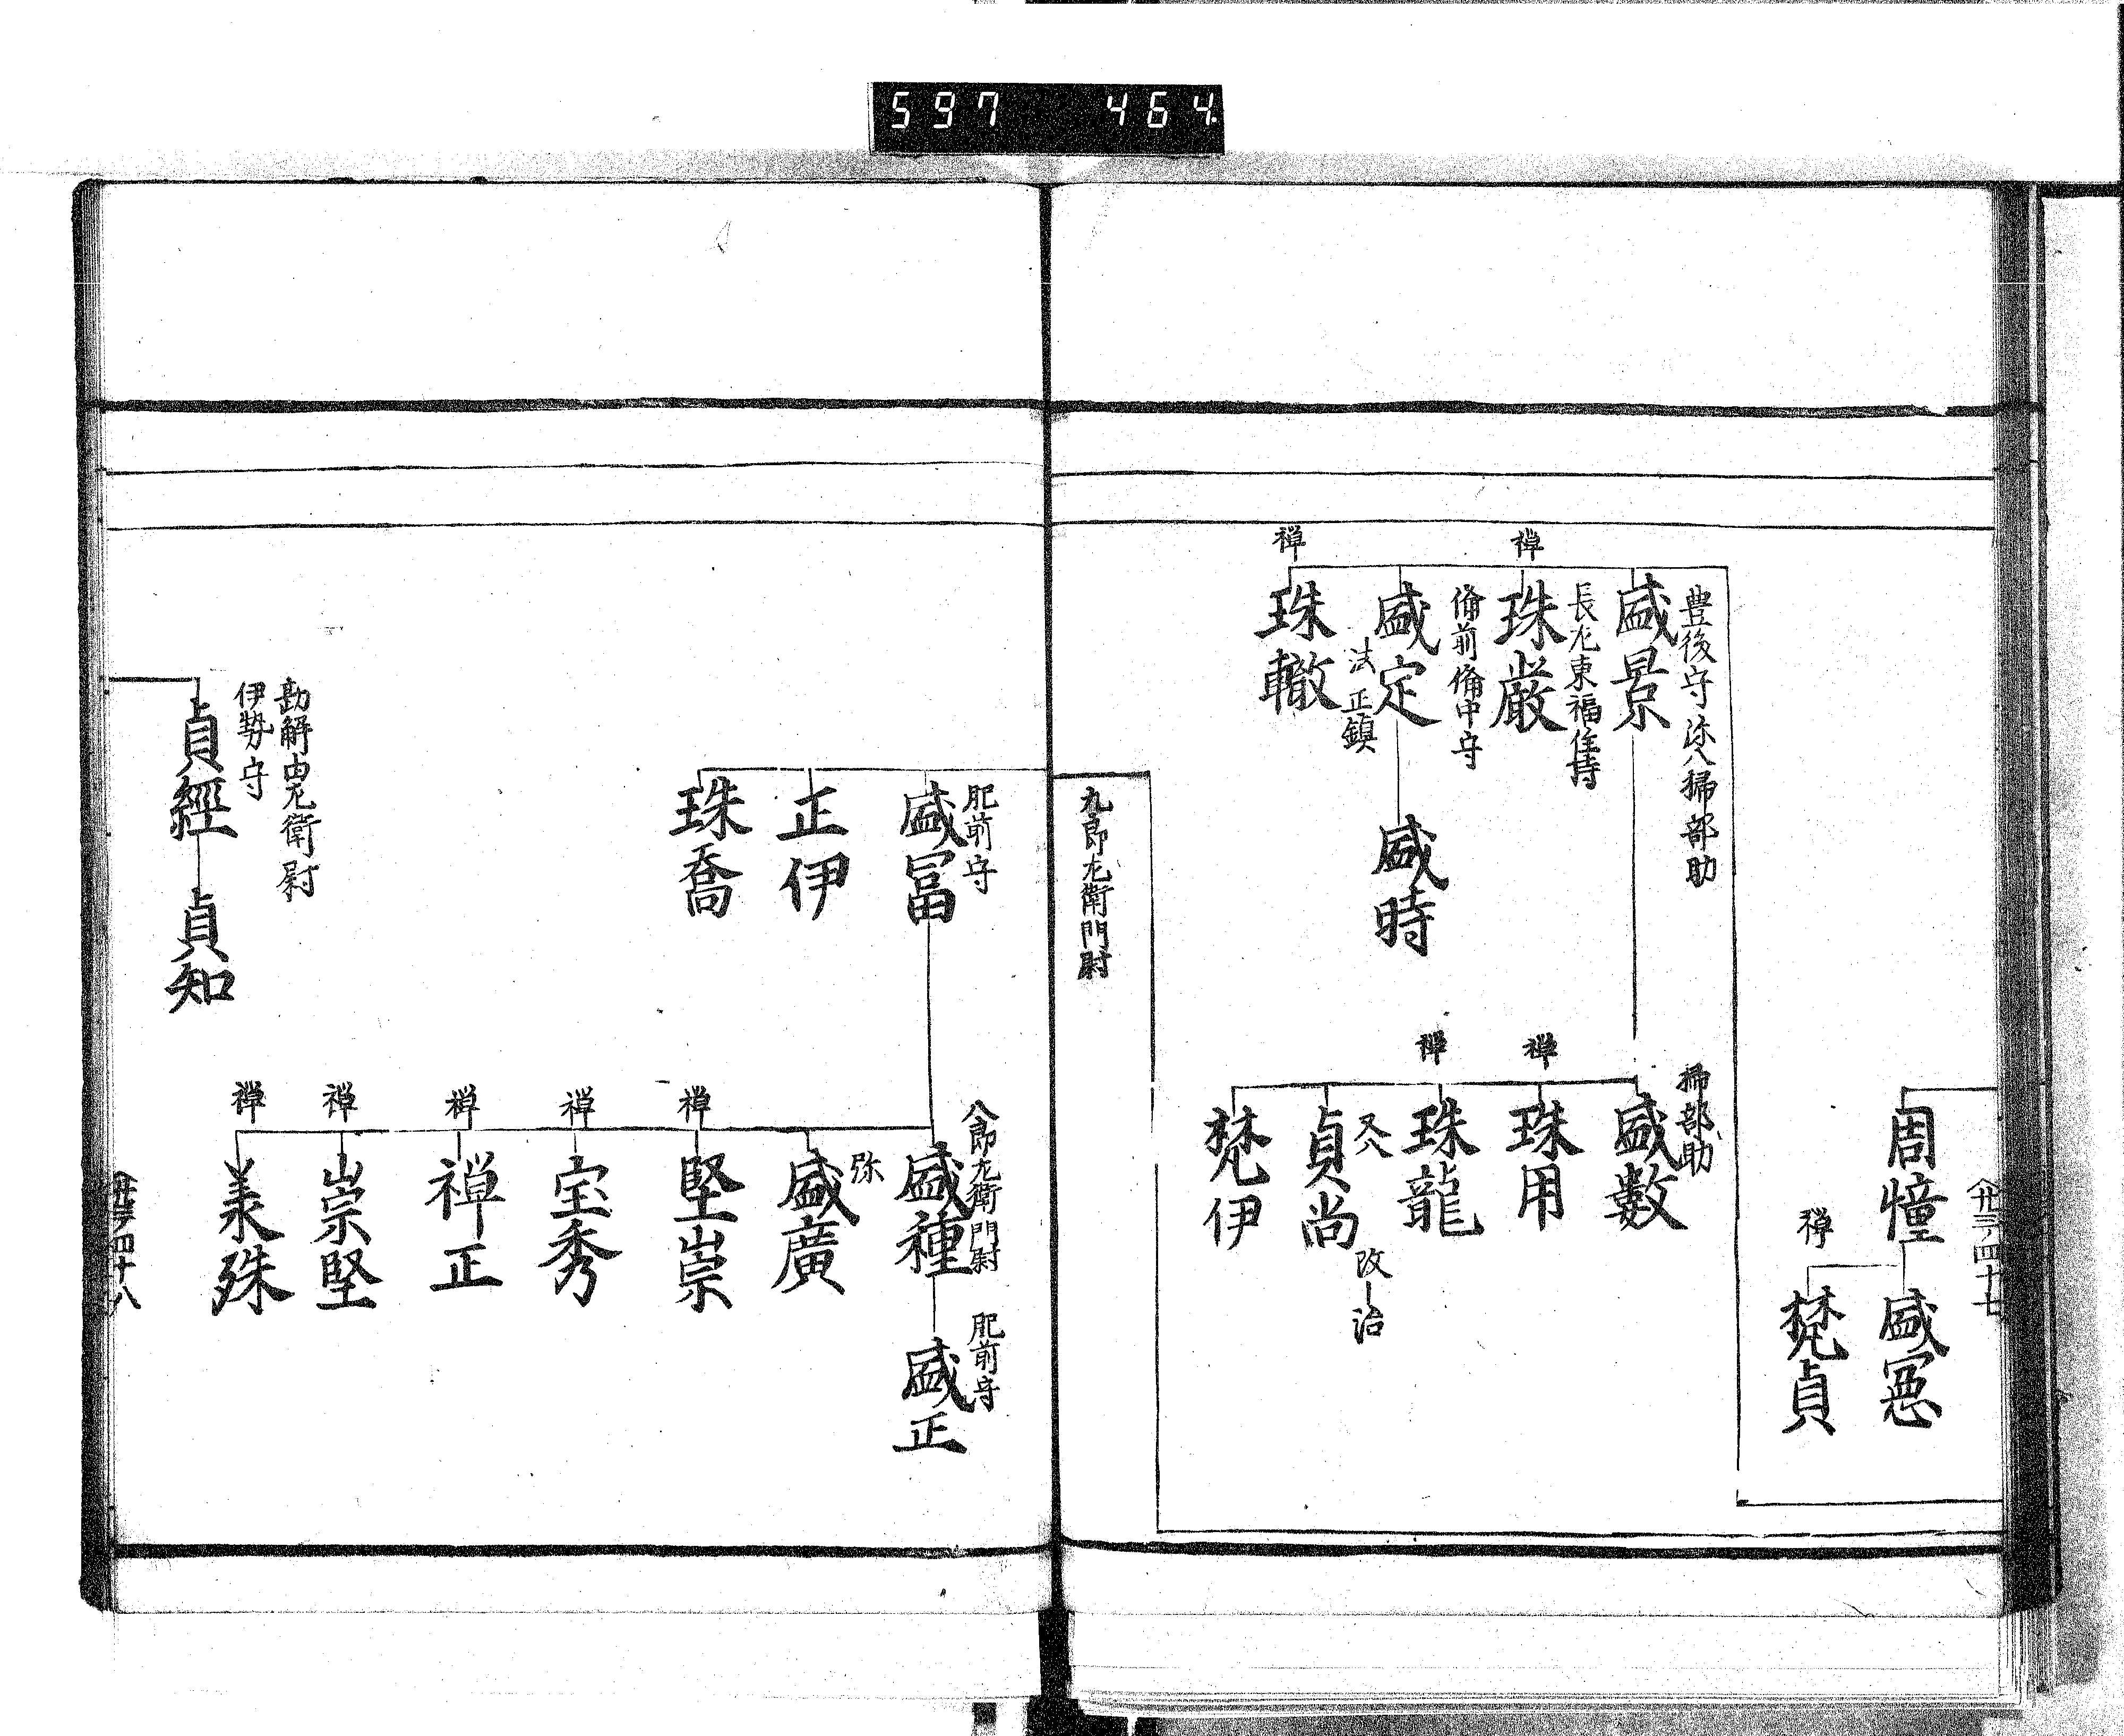 597 464
〈卅三ノ四十七
周憧
盛寛
禅
梵貞
豊後守 弥八 掃部助
盛景
長左東福住持
禅
珠厳
備前備中守
盛定
法 正鎮
盛時
禅
珠轍
掃部助
盛數
禅
珠用
禅
珠龍
又八
貞尚
改ー治
梵伊
九郎左衛門尉
肥前守
盛冨
正伊
珠喬
八郎左衛門尉
盛種
肥前守
盛正
弥
盛廣
禅
堅崇
禅
宝秀
禅
禅正
禅
崇堅
禅
美殊
勘解由左衛尉
伊勢守
貞經
貞知
〈卅三ノ四十八